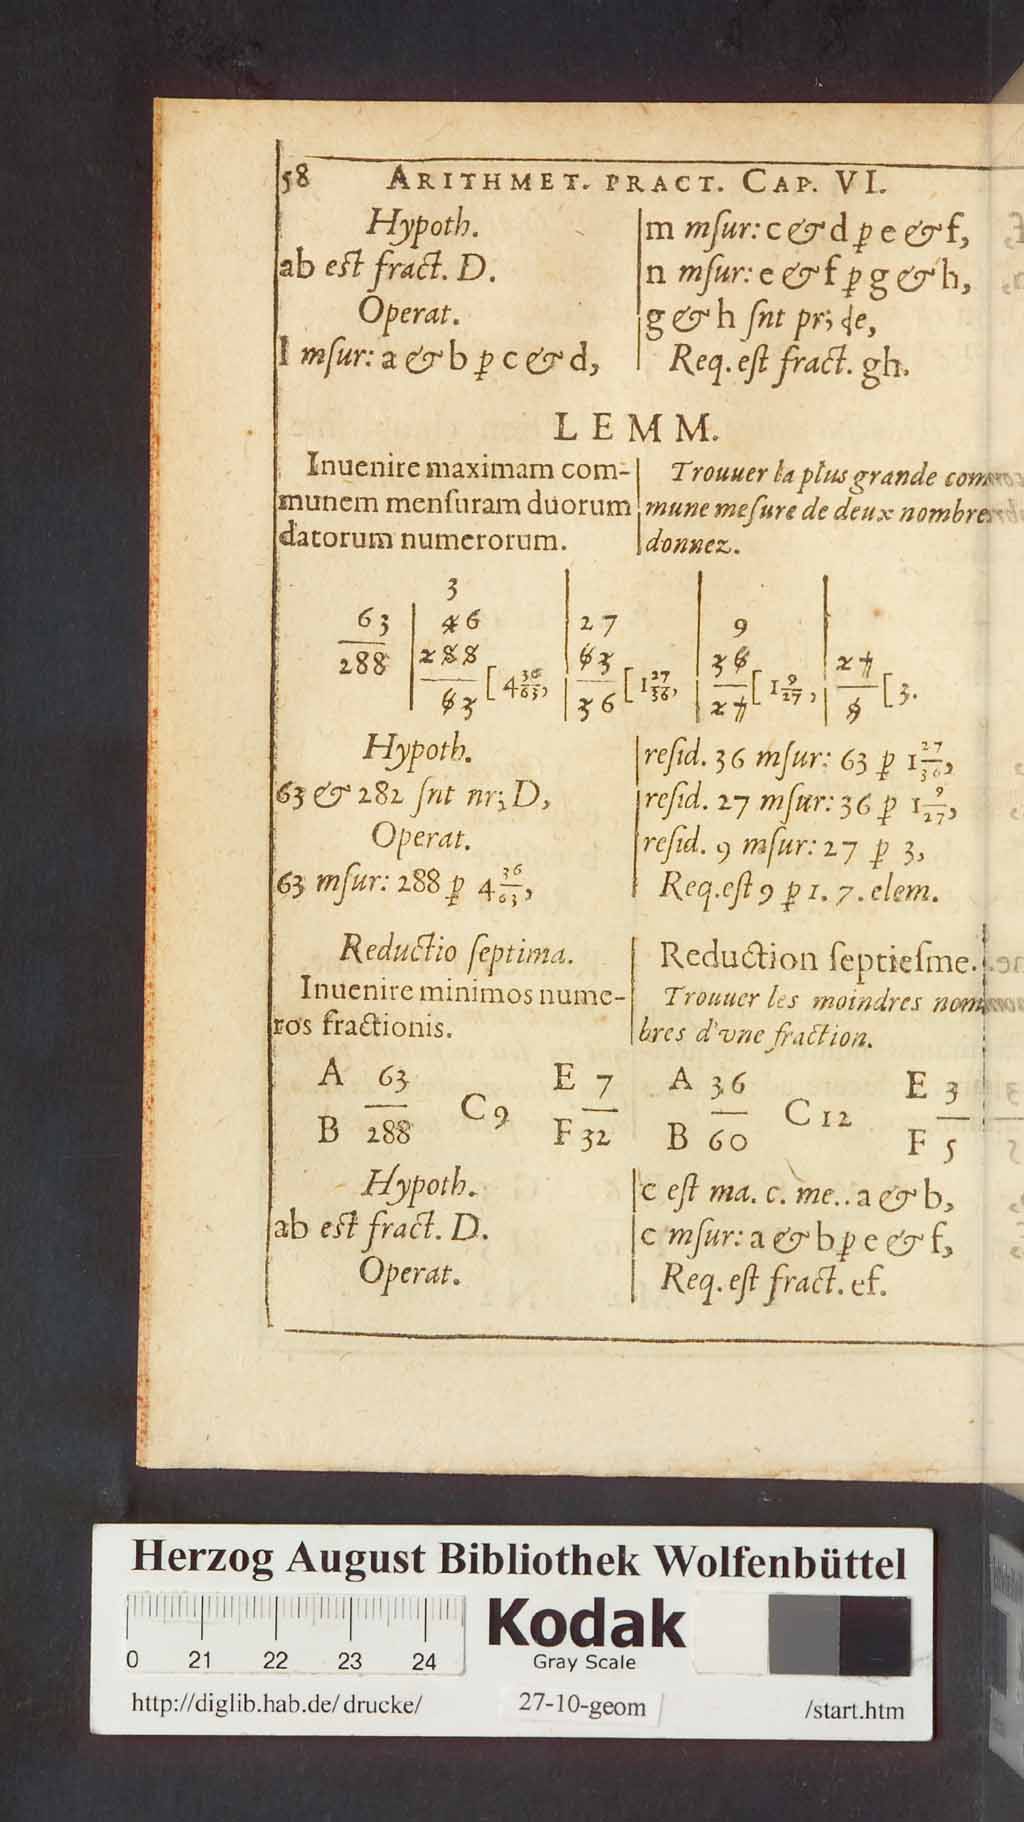 58 ARITHMET. PRACT. CAP. VI.
Hypoth.
ab est fract. D.
Operat.
l mſur: a & b ꝑ c & d,
m mſur: c & d ꝑ e & f,
n mſur: e & f ꝑ g & h,
g & h ſnt
Req. eſt fract. gh.
LEMM.
Inuenire maximam com-
munem menſuram duorum
datorum numerorum.
Trouuer la plus grande com
mune meſure de deux nombres
donnez.
3
63 | 46 | 27 | 9 |
288 | 288 | 63 | 36 | 27
63 [4 36/63, | 36 [1 27/36, | 27 [1 9/27, | 9 [3.
Hypoth.
63 & 282 ſnt nr; D,
Operat.
63 mſur: 288 ꝑ 4 36/63,
reſid. 36 mſur: 63 ꝑ 1 27/36,
reſid. 27 mſur: 36 ꝑ 1 9/27,
reſid. 9 mſur: 27 ꝑ 3,
Req. eſt 9 ꝑ 1. 7. elem.
Reductio ſeptima.
Inuenire minimos nume-
ros fractionis.
Reduction ſeptieſme.
Trouuer les moindres nom
bres d'vne fraction.
A 63 E 7 A 36 E 3
C 9 C 12
B 288 F 32 B 60 F 5
Hypoth.
ab est fract. D.
Operat.
c eſt ma. c. me.. a & b,
c mſur: a & b ꝑ e & f,
Req. eſt fract. ef.
Herzog August Bibliothek Wolfenbüttel
0 21 22 23 24
Kodak
Gray Scale
http://diglib.hab.de/drucke/ 27-10-geom /start.htm